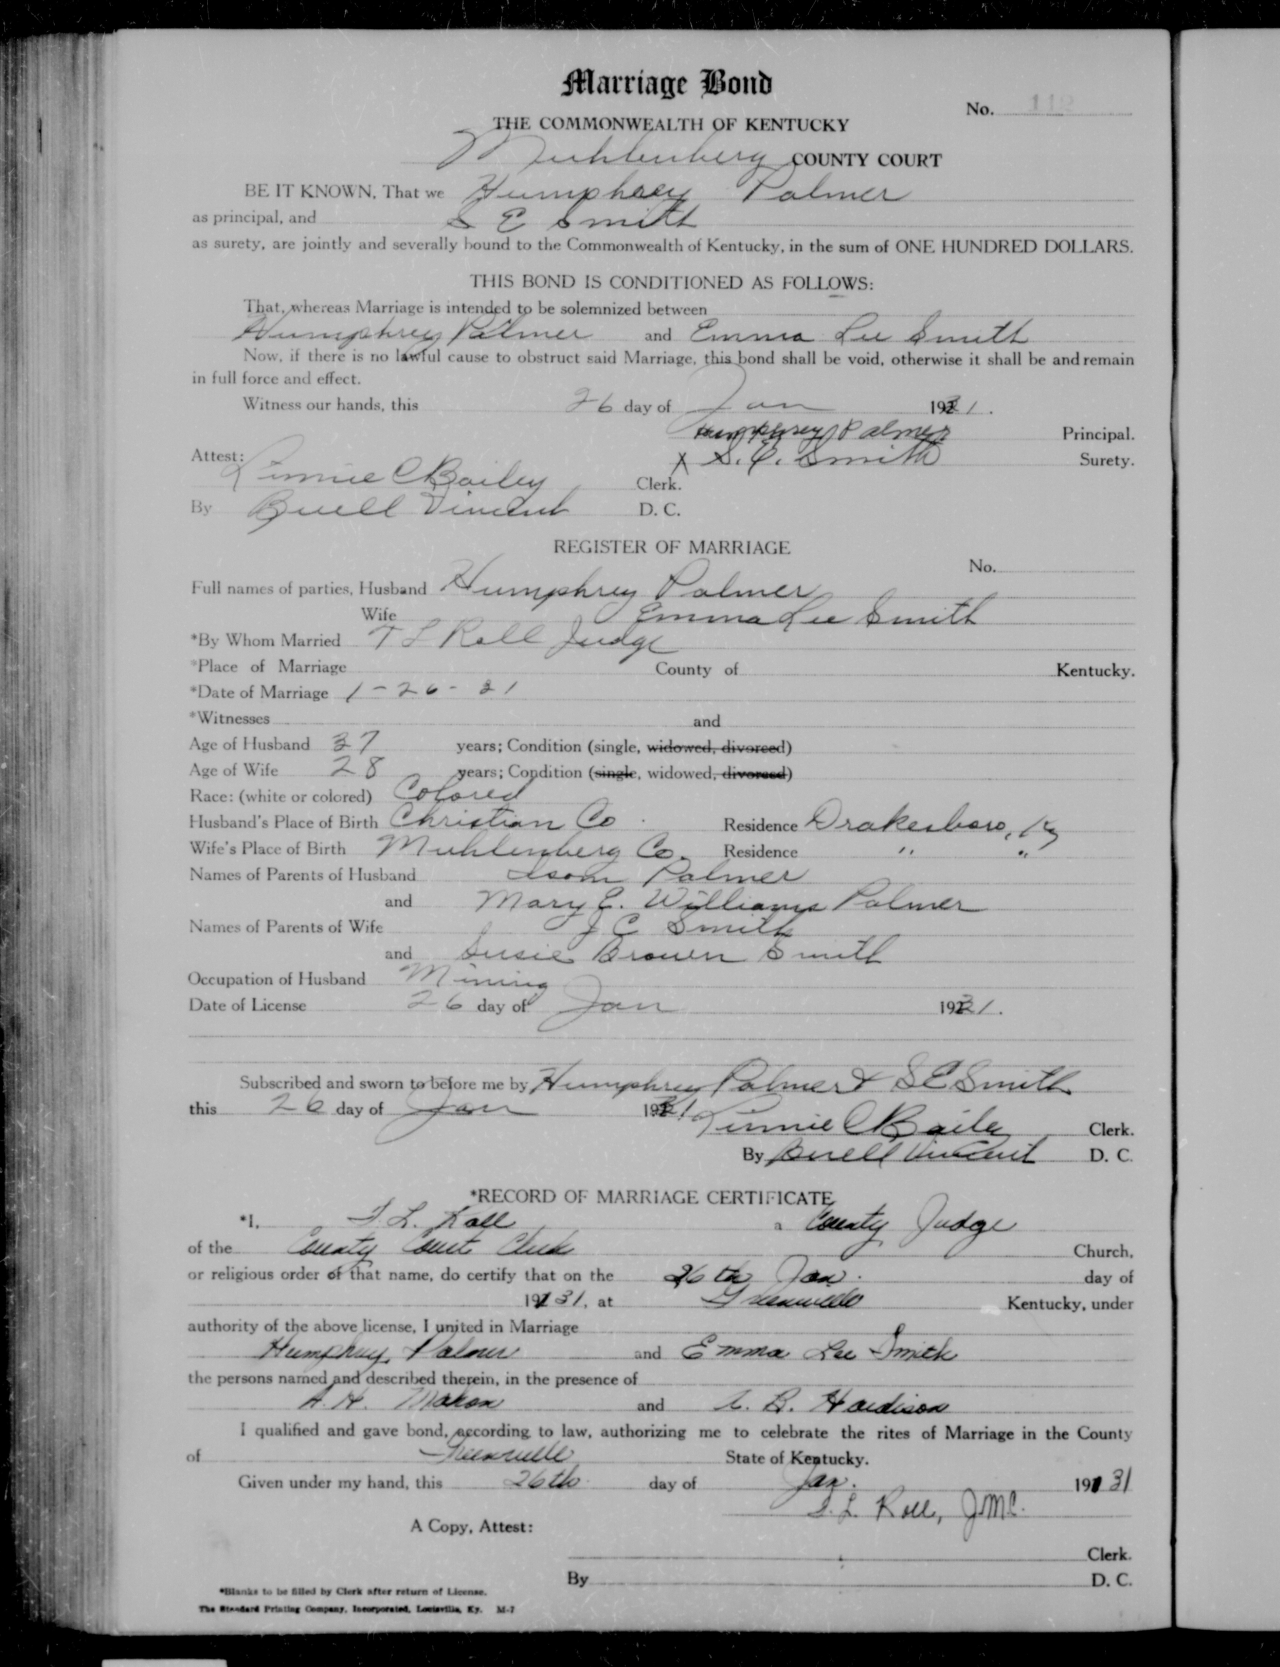 Marriage Bond
No. 112
THE COMMONWEALTH OF KENTUCKY
Muhlenberg COUNTY COURT
BE IT KNOWN, That we Humphrey Palmer
as principal, and S E Smith
as surety, are jointly and severally bound to the Commonwealth of Kentucky, in the sum of ONE HUNDRED DOLLARS.
THIS BOND IS CONDITIONED AS FOLLOWS:
That, whereas Marriage is intended to be solemnized between
Humphrey Palmer and Emma Lee Smith
Now, if there is no lawful cause to obstruct said Marriage, this bond shall be void, otherwise it shall be and remain
in full force and effect.
Witness our hands, this 26 day of Jan 1931.
Humphrey Palmer Principal.
X S. E. Smith Surety.
Attest:
Linnie C Bailey Clerk.
By Buell Vincent D. C.
REGISTER OF MARRIAGE
No.
Full names of parties, Husband Humphrey Palmer
Wife Emma Lee Smith
*By Whom Married T L Roll Judge
*Place of Marriage County of Kentucky.
*Date of Marriage 1-26-31
*Witnesses and
Age of Husband 37 years; Condition (single, widowed, divorced)
Age of Wife 28 years; Condition (single, widowed, divorced)
Race: (white or colored) Colored
Husband's Place of Birth Christian Co. Residence Drakesboro, Ky
Wife's Place of Birth Muhlenberg Co. Residence " "
Names of Parents of Husband Isom Palmer
and Mary E. Williams Palmer
Names of Parents of Wife J C Smith
and Susie Brown Smith
Occupation of Husband Mining
Date of License 26 day of Jan 1931.
Subscribed and sworn to before me by Humphrey Palmer & S E Smith
this 26 day of Jan 1931 Linnie C Bailey Clerk.
By Buell Vincent D. C.
*RECORD OF MARRIAGE CERTIFICATE
*I, T. L. Roll a County Judge
of the County Court Clerk Church,
or religious order of that name, do certify that on the 26th Jan. day of
1931, at Greenville Kentucky, under
authority of the above license, I united in Marriage
Humphrey Palmer and Emma Lee Smith
the persons named and described therein, in the presence of
A. H. Mohon and B. Hardison
I qualified and gave bond, according to law, authorizing me to celebrate the rites of Marriage in the County
of Greenville State of Kentucky.
Given under my hand, this 26th day of Jan. 1931
T. L. Roll, J.M.C.
A Copy, Attest:
Clerk.
By D. C.
*Blanks to be filled by Clerk after return of License.
The Standard Printing Company, Incorporated, Louisville, Ky. M-7